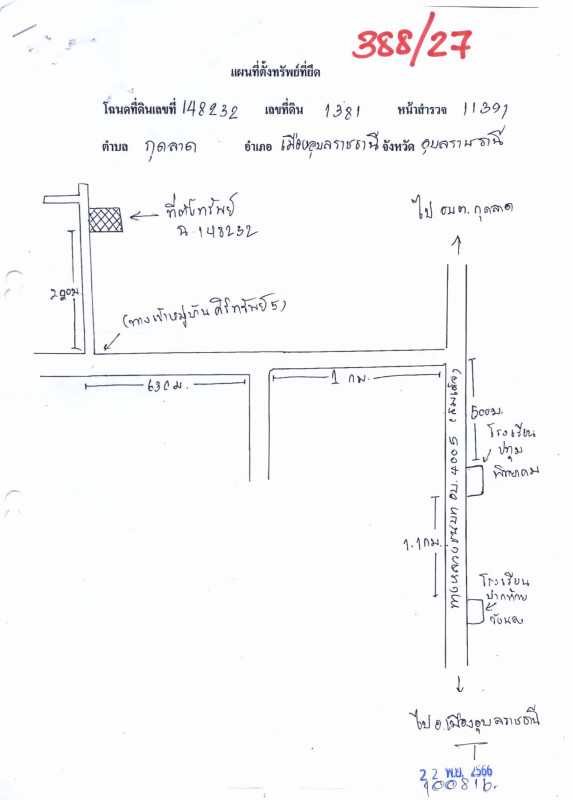 388/27
แผนที่ตั้งทรัพย์ที่ยึด
โฉนดที่ดินเลขที่ 148232 เลขที่ดิน 1381 หน้าสำรวจ 11391
ตำบล กุดลาด อำเภอ เมืองอุบลราชธานี จังหวัด อุบลราชธานี
ไป อบต. กุดลาด
ที่ตั้งทรัพย์
ฉ. 148232
(ทางเข้าหมู่บ้าน ศิริทรัพย์ 5)
630 ม.
1 กม.
500ม.
โรงเรียน
ปทุม
พิทยาคม
ทางหลวงชนบท อบ.4005
1.1กม.
โรงเรียน
ไป อ.เมืองอุบลราชธานี
22 พ.ย. 2566